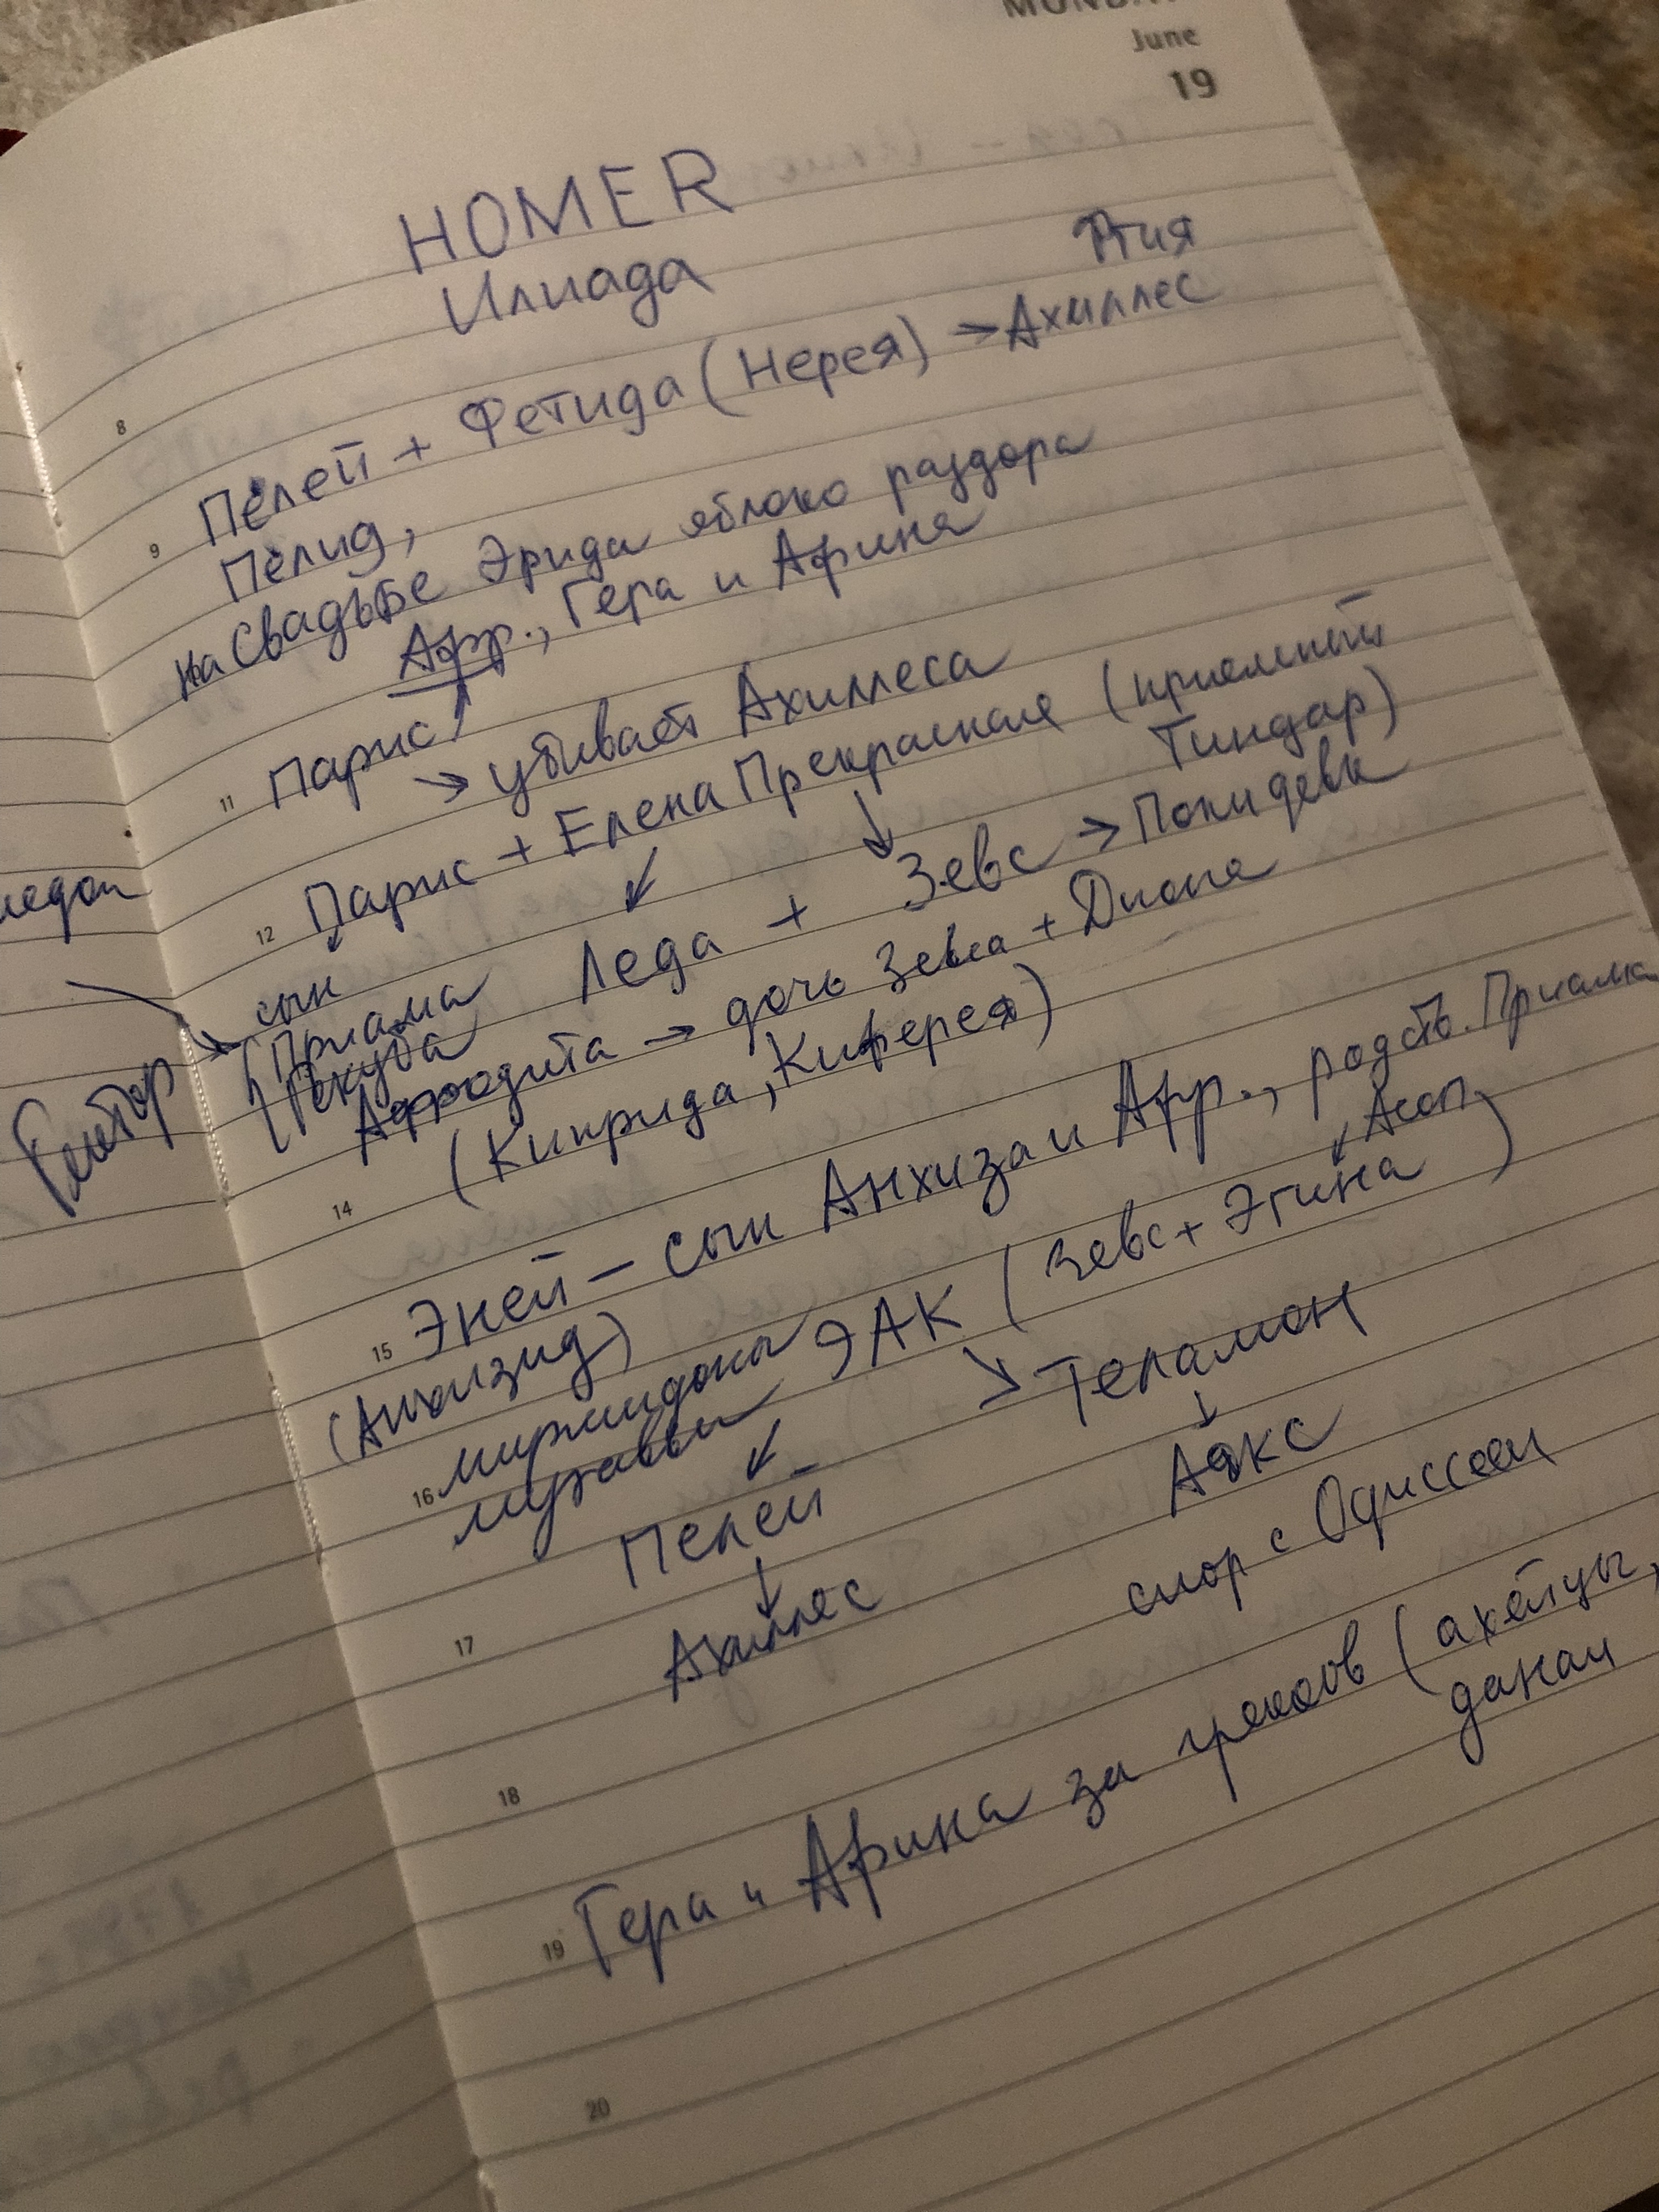 MONDAY
June
19
HOMER
Илиада
Фтия
8
Пелей + Фетида (Нерея) → Ахиллес
9
Пелид,
на свадьбе Эрида яблоко раздора
Афр., Гера и Афина
11
Парис
→ убивает Ахиллеса
12
Парис + Елена Прекрасная (приемный
Тиндар)
сын
Леда + Зевс → Полидевк
Приама
Гекуба
Гектор →
Афродита → дочь Зевса + Диона
(Киприда, Киферея)
14
15
Эней – сын Анхиза и Афр., родств. Приама
(Анхизид)
Асоп
мирмидоны ЭАК (Зевс + Эгина)
16
муравьи
→ Теламон
Пелей
Аякс
17
Ахиллес
спор с Одиссеем
18
19
Гера и Афина за греков (ахейцы,
данаи
20